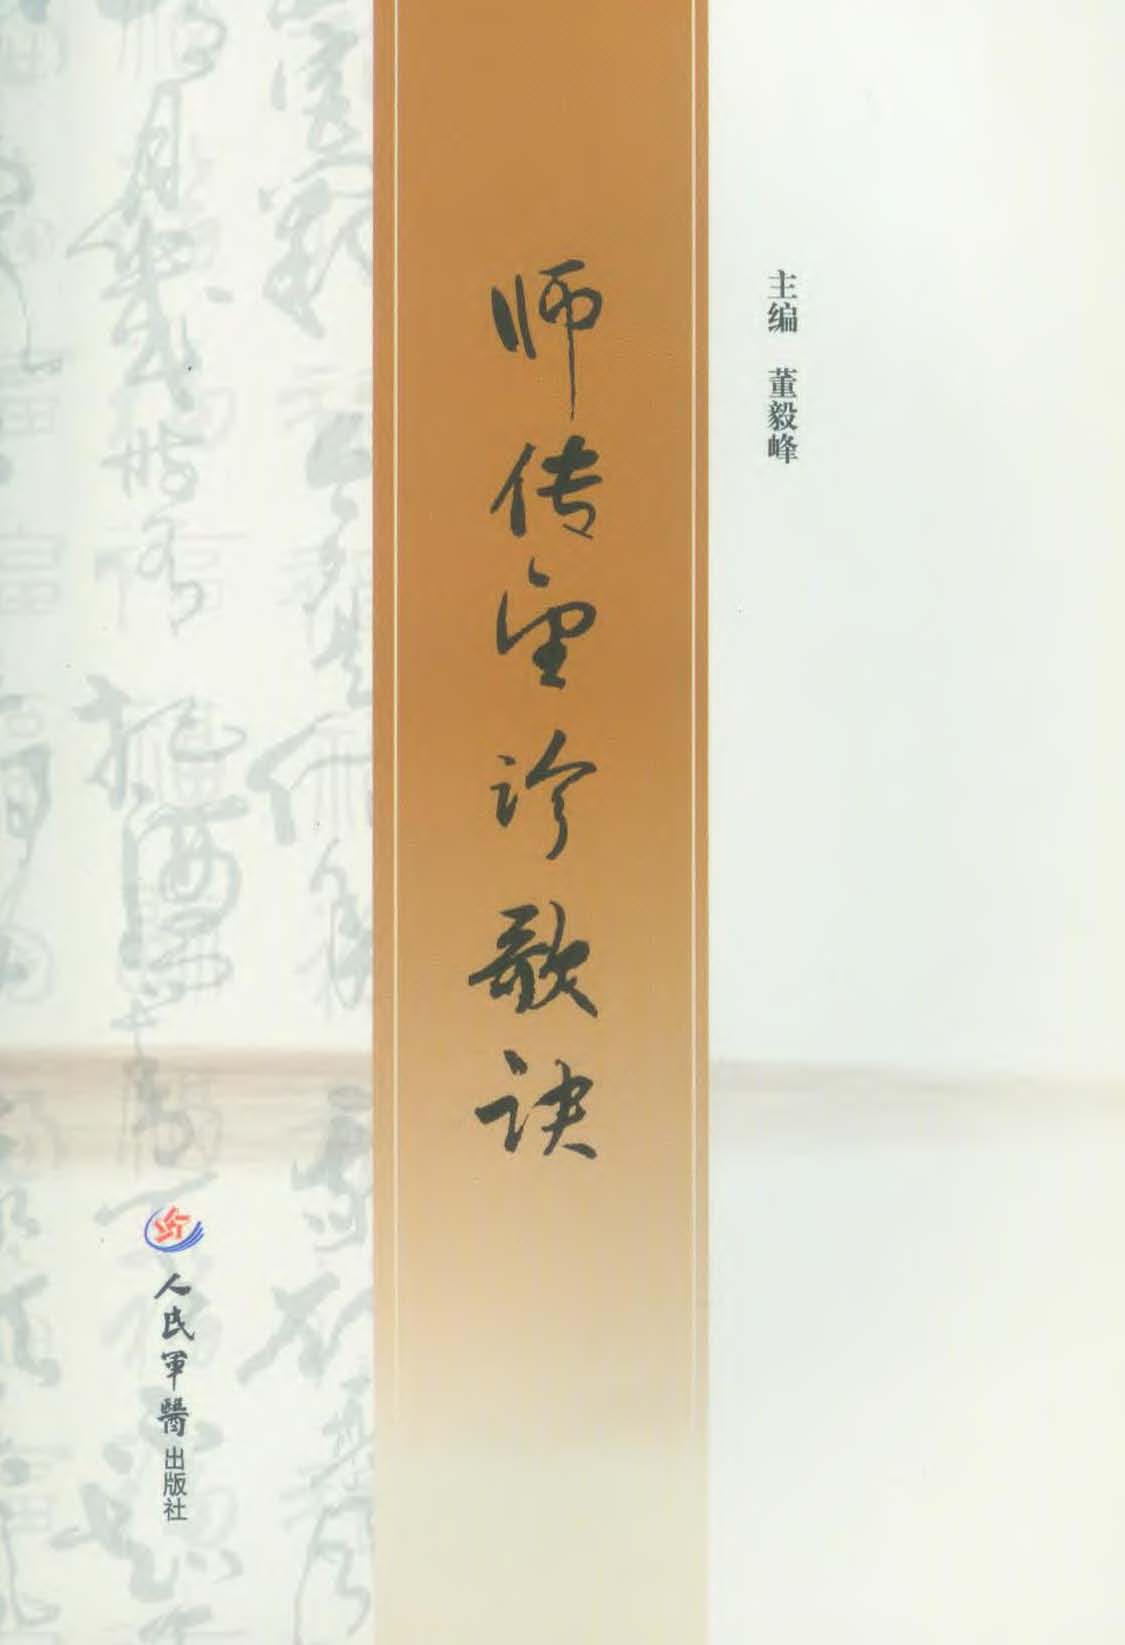 主编 董毅峰
师传望诊歌诀
人民军醫出版社